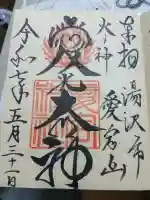 奉拝　湯沢市
火神　愛宕山
大神
令和七年五月三十一日